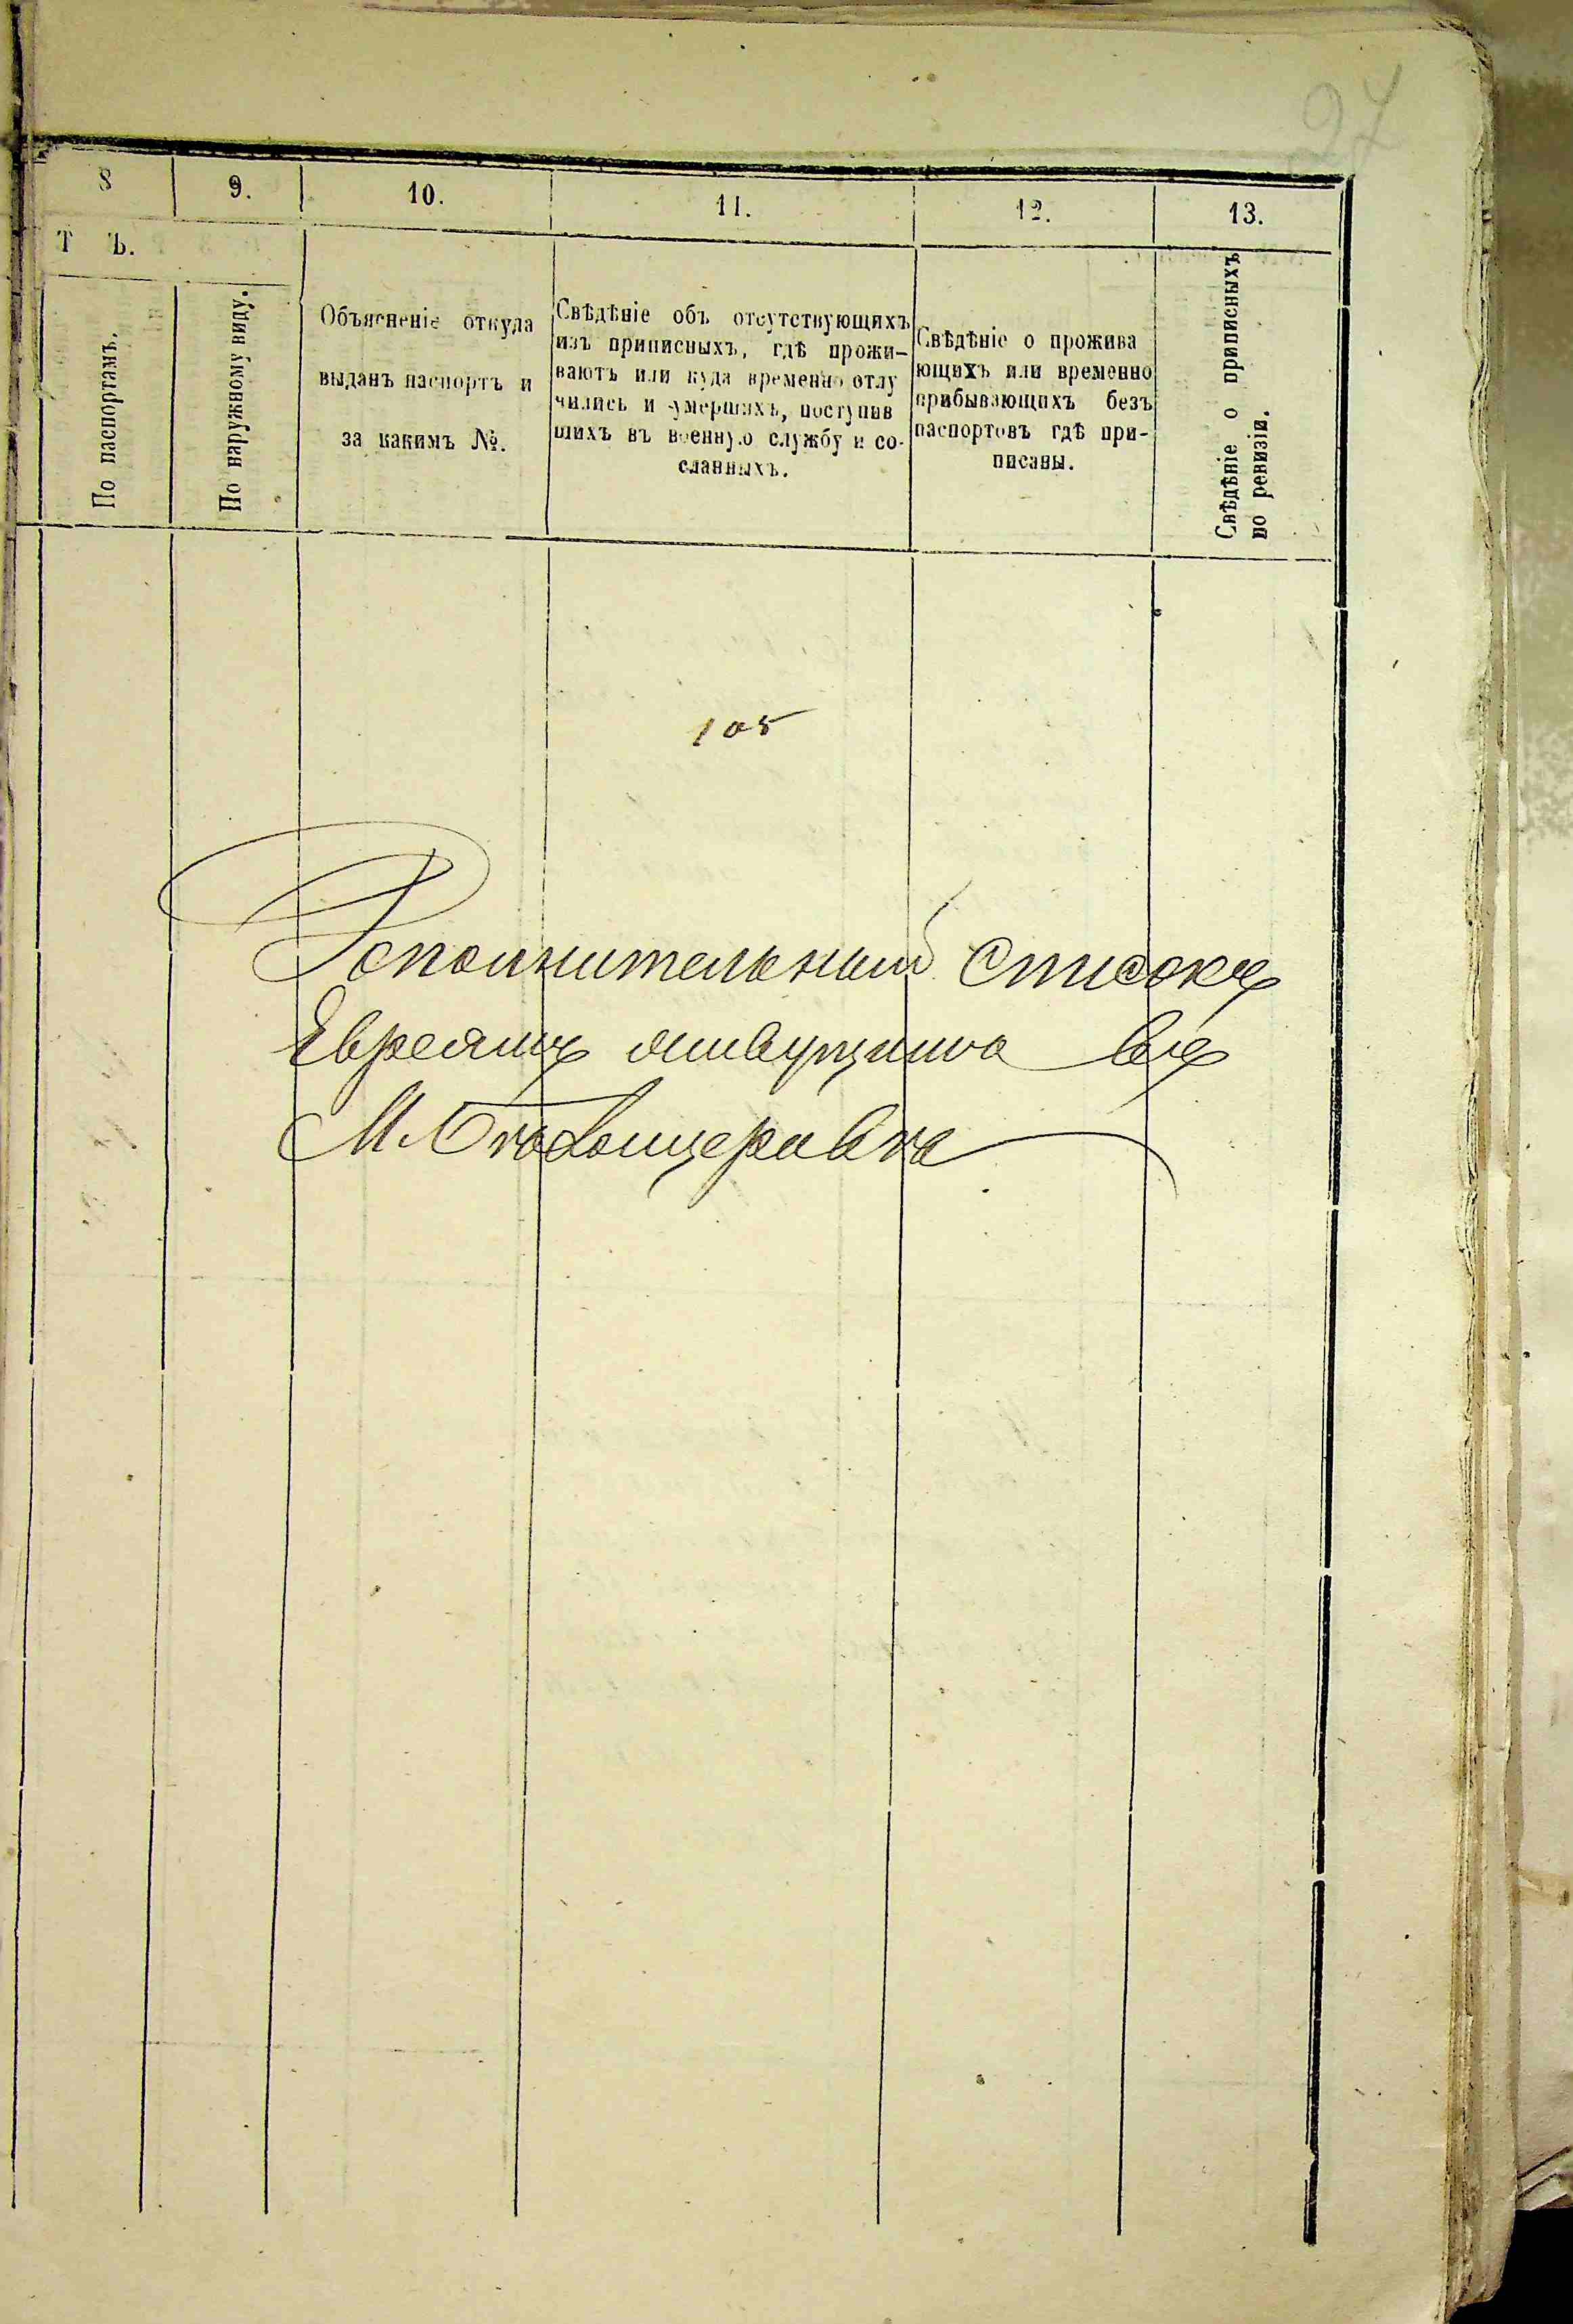 27
8 9. 10. 11. 12. 13.
Т Ъ.
По паспортамъ.
По наружному виду.
Объясненіе откуда
выданъ паспортъ и
за какимъ №.
Свѣдѣніе объ отсутствующихъ
изъ приписныхъ, гдѣ прожи-
ваютъ или куда временно отлу
чились и умершихъ, поступив
шихъ въ военную службу и со-
сланныхъ.
Свѣдѣніе о прожива
ющихъ или временно
прибывающихъ безъ
паспортовъ гдѣ при-
писаны.
Свѣдѣніе о приписныхъ
по ревизіи.
105
Дополнительный Списокъ
Евреямъ живущимъ въ
М.